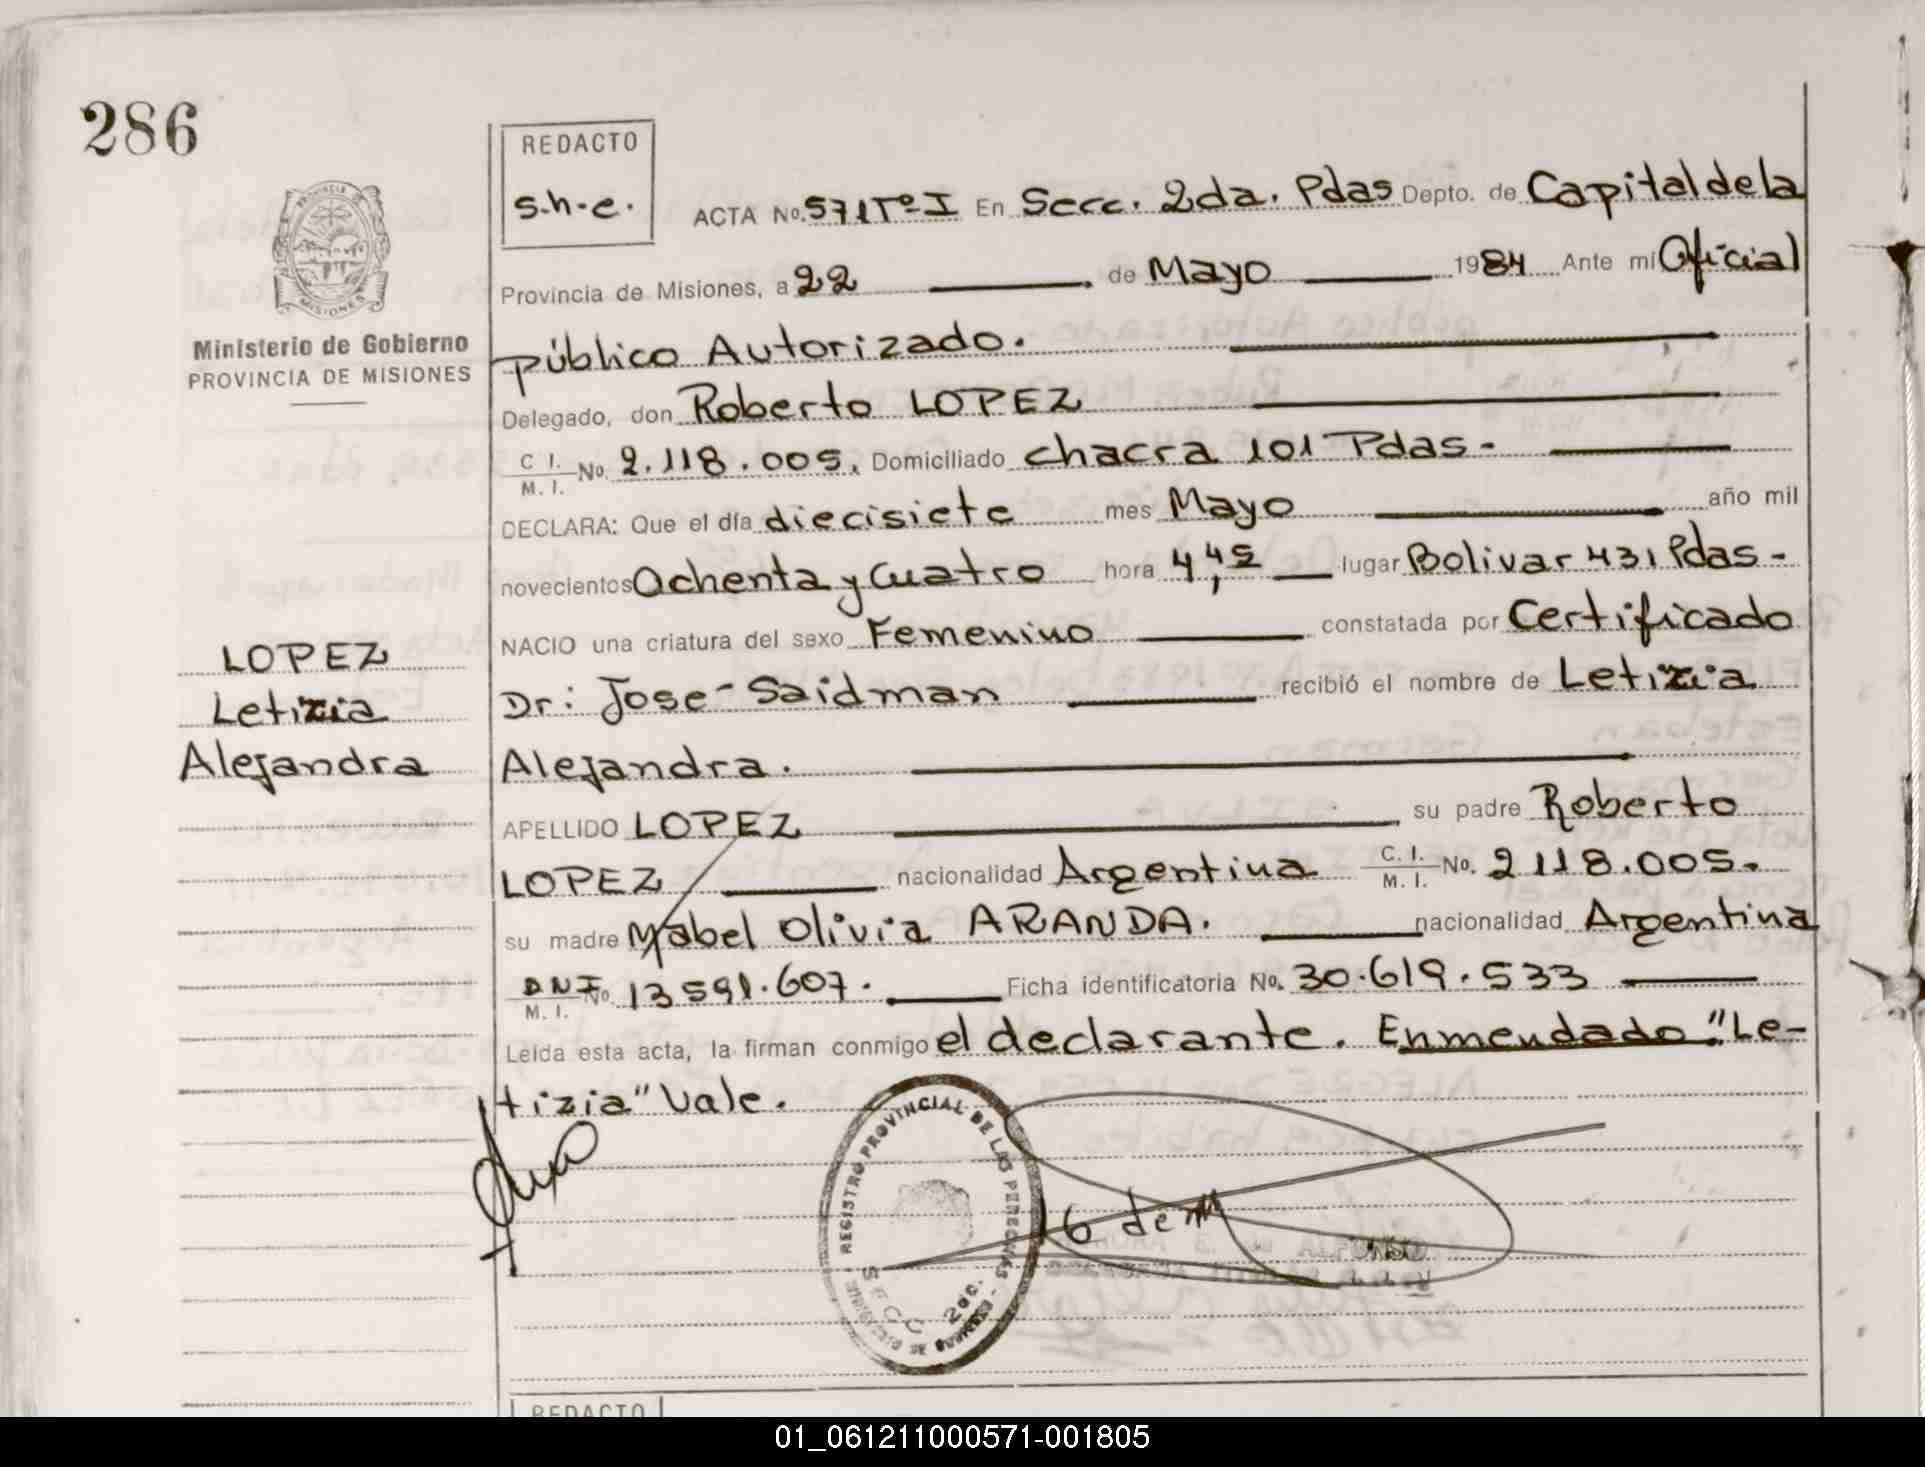 286
REDACTO
s.h.e.
ACTA No. 571 Tº I En Secc. 2da. Pdas Depto. de Capital de la
Provincia de Misiones, a 22 de Mayo 1984 Ante mi Oficial
público Autorizado.
Delegado, don Roberto LOPEZ
C. I. M. I. No. 2.118.005. Domiciliado chacra 101 Pdas-
DECLARA: Que el día diecisiete mes Mayo año mil
novecientos Ochenta y Cuatro hora 4,45 lugar Bolivar 431 Pdas-
NACIO una criatura del sexo Femenino constatada por Certificado
Dr: Jose Saidman recibió el nombre de Letizia
Alejandra.
APELLIDO LOPEZ su padre Roberto
LOPEZ nacionalidad Argentina C. I. M. I. No. 2118.005.
su madre Mabel Olivia ARANDA. nacionalidad Argentina
DNI M. I. No. 13591.607. Ficha identificatoria No. 30.619.533
Leída esta acta, la firman conmigo el declarante. Enmendado "Le-
tizia" Vale.
PROVINCIA DE
MISIONES
Ministerio de Gobierno
PROVINCIA DE MISIONES
LOPEZ
Letizia
Alejandra
REGISTRO PROVINCIAL DE LAS PERSONAS
SECC 2da.
REDACTO
01_061211000571-001805